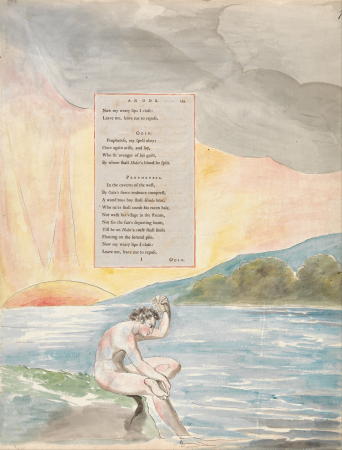 AN ODE.
Now my weary lips I close:
Leave me, leave me to repose.
ODIN.
Prophetess, my spell obey:
Once again arise, and say,
Who th' avenger of his guilt,
By whom shall Hoder's blood be spilt.
PROPHETESS.
In the caverns of the west,
By Odin's fierce embrace comprest,
A wond'rous boy shall Rinda bear,
Who ne'er shall comb his raven hair,
Nor wash his visage in the stream,
Nor see the sun's departing beam,
Till he on Hoder's corse shall smile
Flaming on the funeral pile.
Now my weary lips I close:
Leave me, leave me to repose.
ODIN.